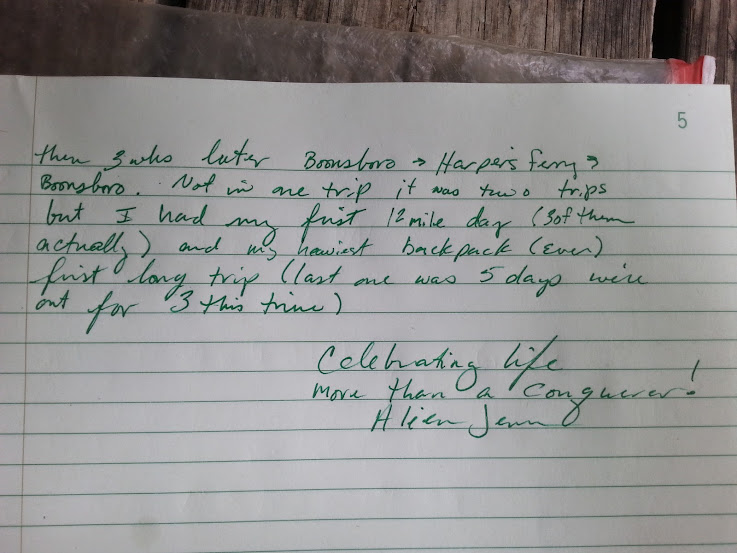 5
then 3 wks later Boonsboro → Harper's Ferry →
Boonsboro. Not in one trip it was two trips
but I had my first 12 mile day (3 of them
actually) and my heaviest backpack (ever)
first long trip (last one was 5 days we're
out for 3 this time)
Celebrating life
more than a conquerer!
Alien Jenn